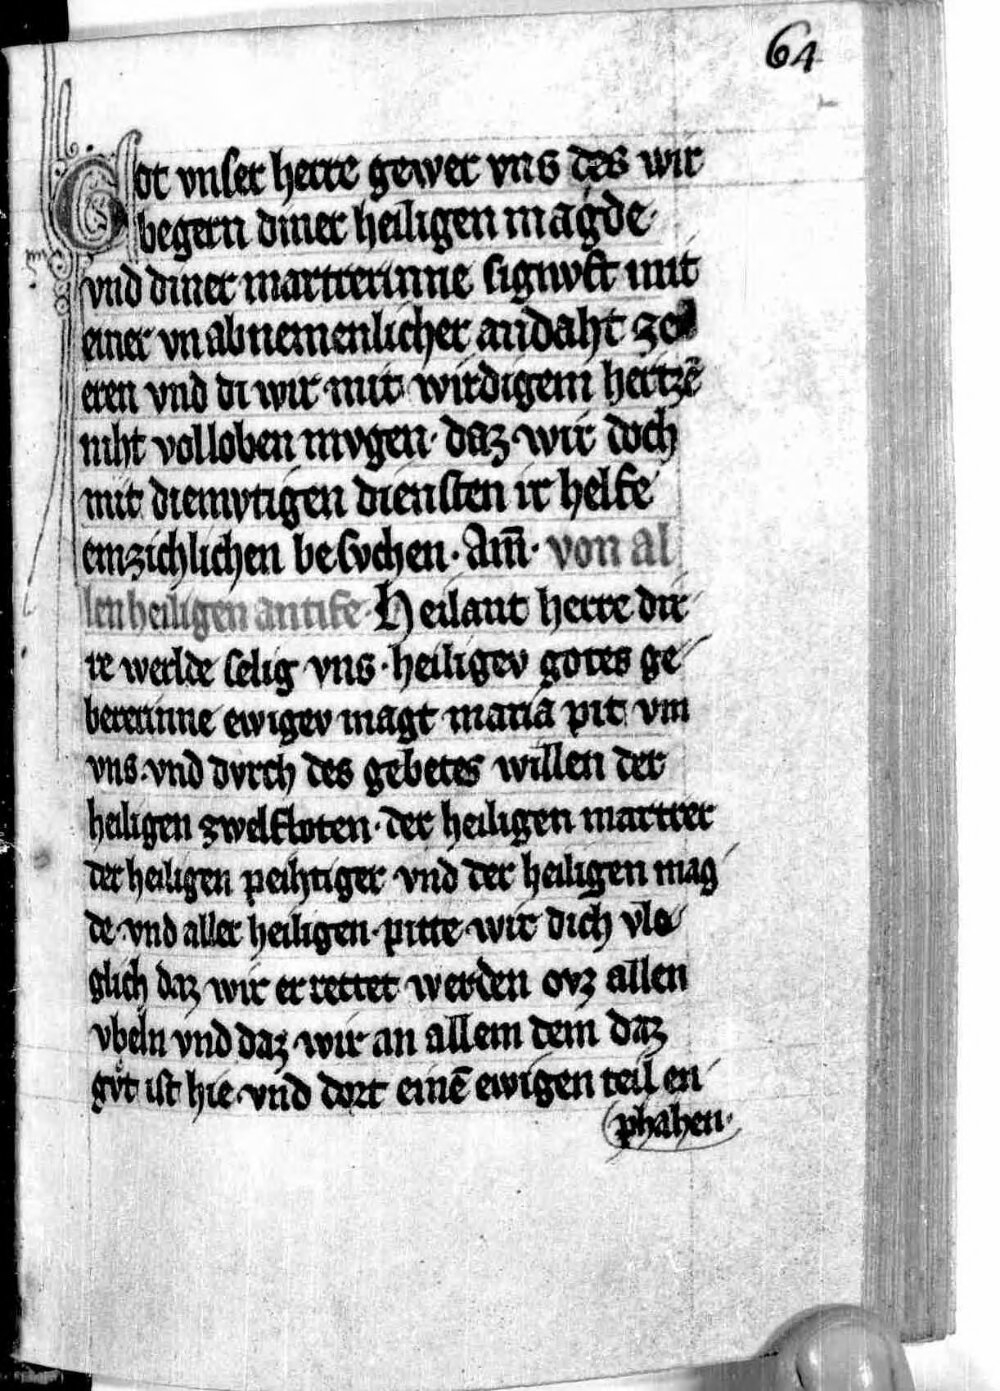 64
Got vnser herre gewer vns des wir
begern diner heiligen magde
vnd diner martrerinne signvft mit
einer vn abnemenlicher andaht ze
eren vnd di wir mit wirdigem hertzē
niht volloben mvgen · daz wir doch
mit diemvtigen diensten ir helfe
emzichlichen besvchen · Am̄ · von al
len heiligen antife · Heilant herre dir
re werlde selig vns · heiligev gotes ge
bererinne ewigev magt maria pit vm
vns · vnd dvrch des gebetes willen der
heiligen zwelfboten · der heiligen martrer
der heiligen peihtiger vnd der heiligen mag
de · vnd aller heiligen · pitte wir dich vle
glich daz wir errettet werden ovz allen
vbeln vnd daz wir an allem dem daz
gvͦt ist hie · vnd dort einē ewigen teil en
phahen ·